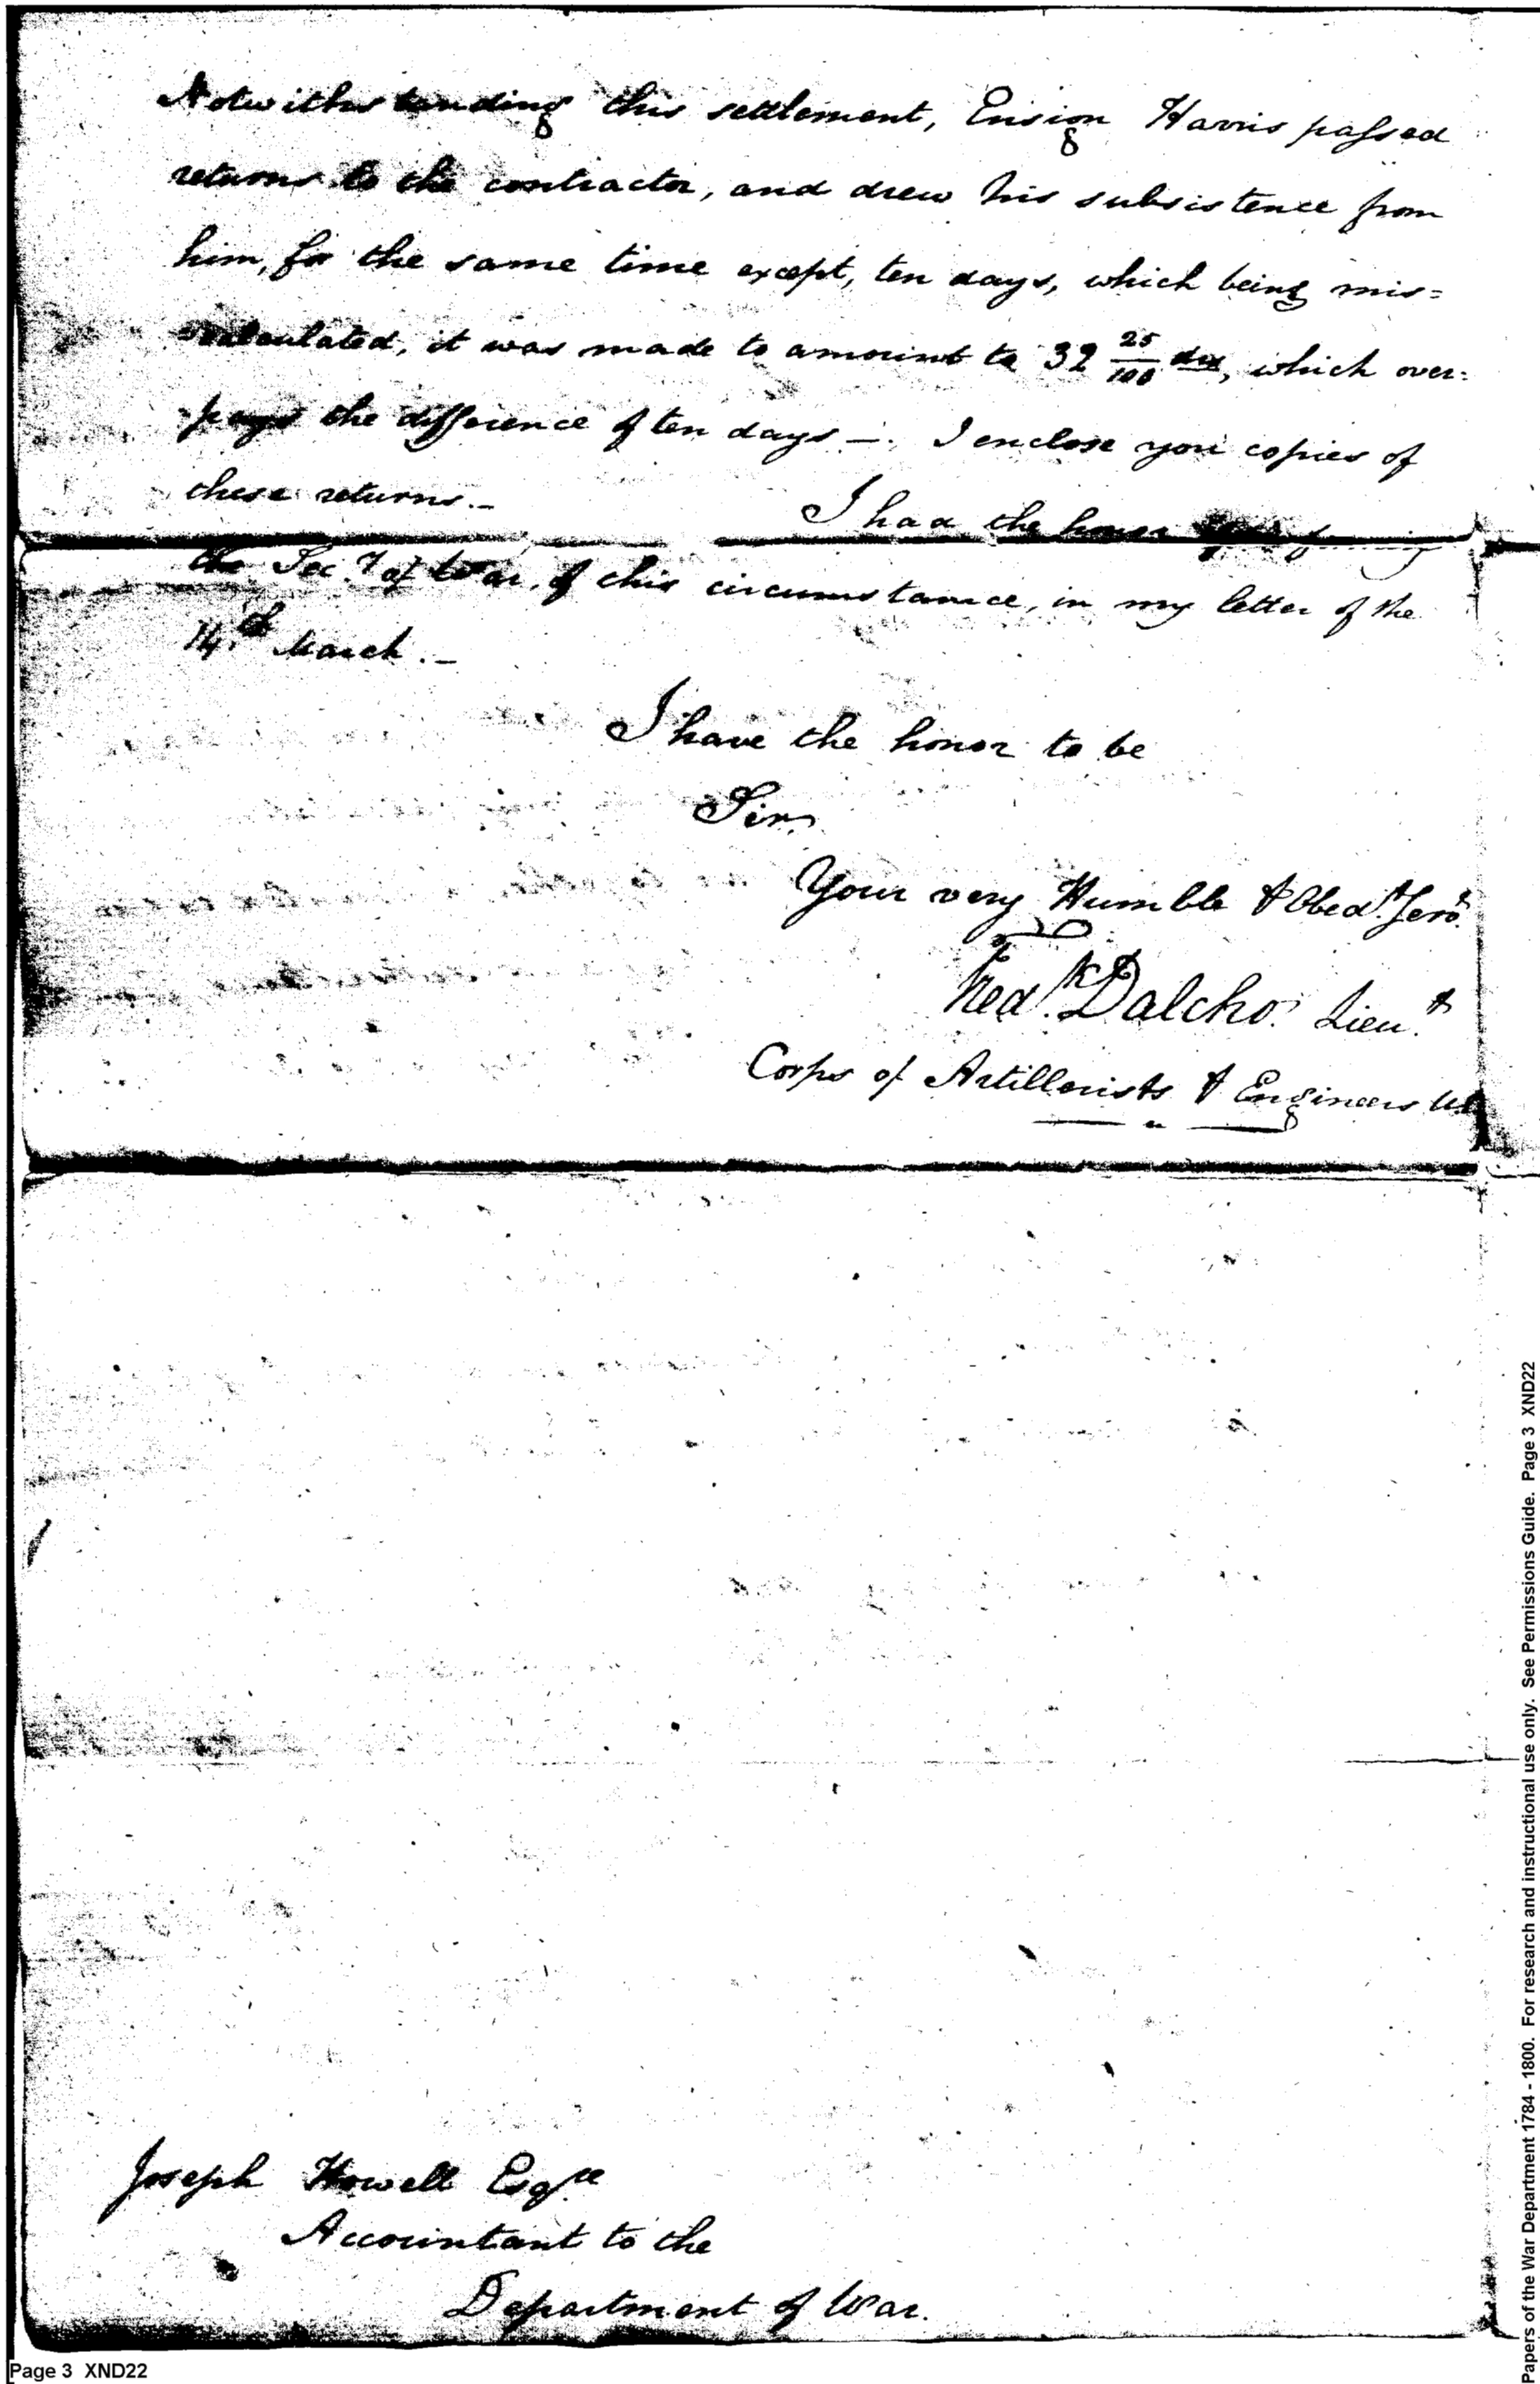 Notwithstanding this settlement, Ensign Harris passed
returns to the contractor, and drew his subsistence from
him, for the same time except, ten days, which being mis=
=calculated, it was made to amount to 32 25/100 dol.s, which over=
=pays the difference of ten days —. I enclose you copies of
these returns.—
I had the honor
the Sec.y of War, of this circumstance, in my letter of the
14.th March.—
I have the honor to be
Sir,
Your very Humble & Obed.t Serv.t
Fred.k Dalcho. Lieu.t
Corps of Artillerists & Engineers
Joseph Howell Esq.re
Accountant to the
Department of War.
Page 3 XND22
Papers of the War Department 1784 - 1800. For research and instructional use only. See Permissions Guide. Page 3 XND22